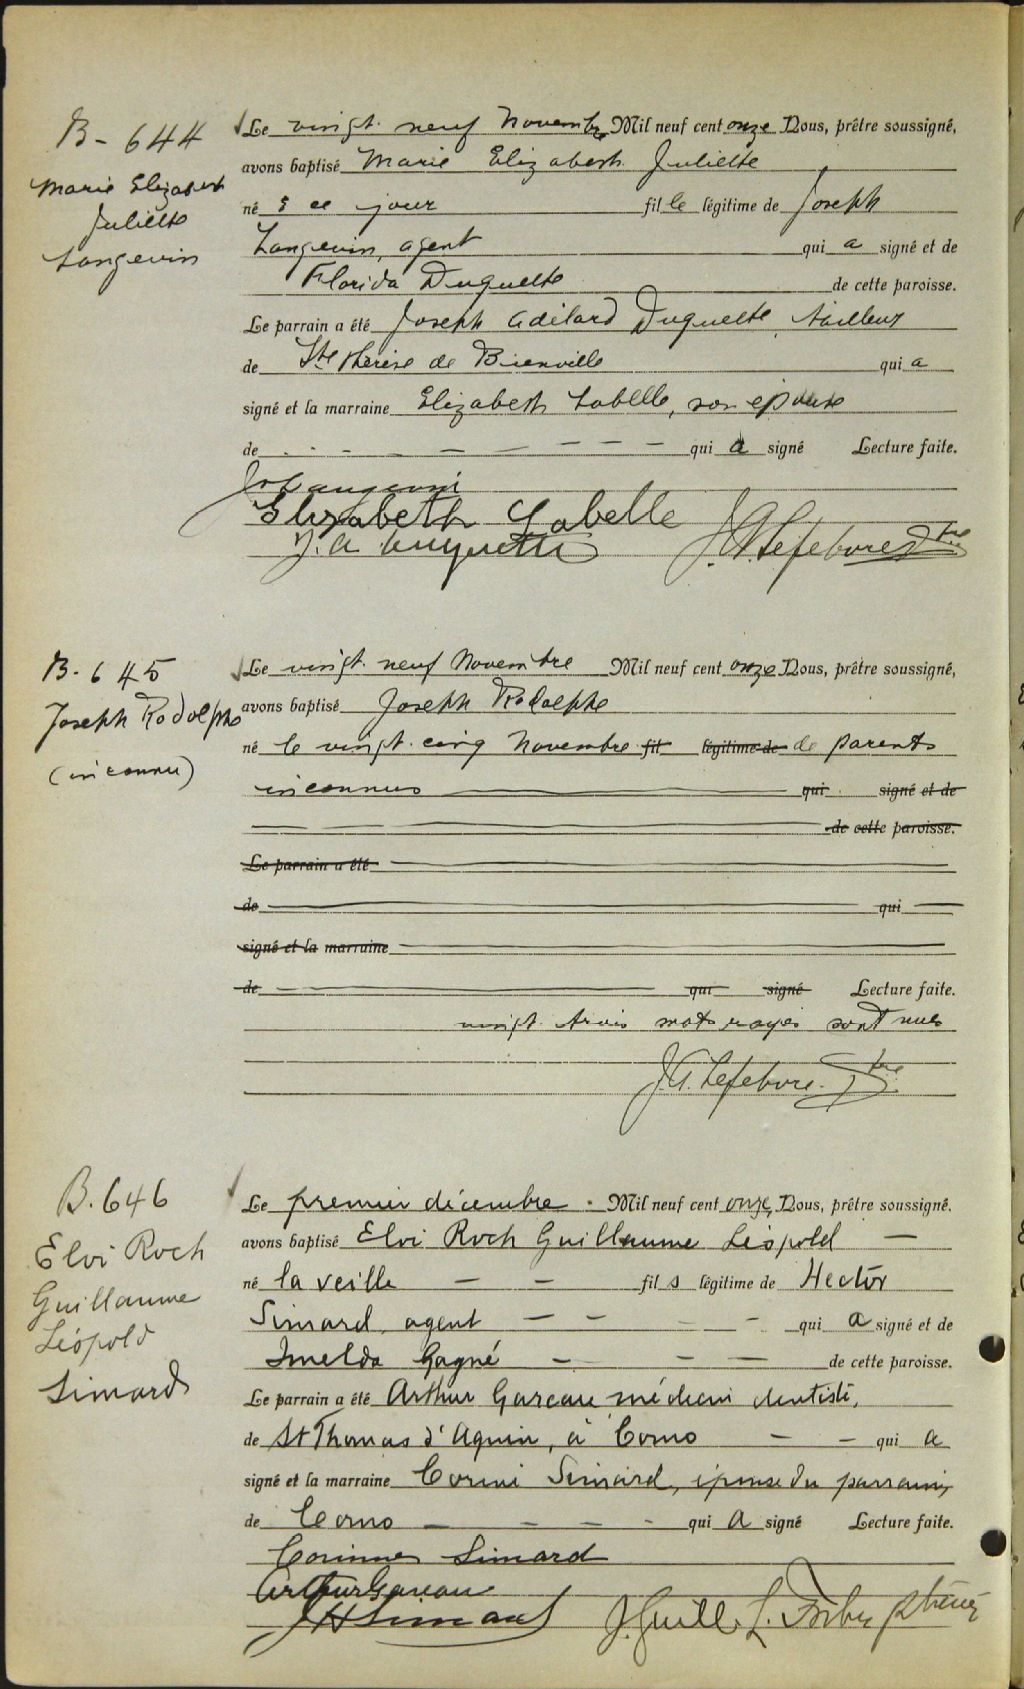 B- 644
Marie Elizabeth
Juliette
Langevin
Le vingt neuf Novembre Mil neuf cent onze Nous, prêtre soussigné,
avons baptisé Marie Elizabeth Juliette
né e ce jour fille légitime de Joseph
Langevin, agent qui a signé et de
Florida Duquette de cette paroisse.
Le parrain a été Joseph Adélard Duquette, tailleur
de Ste Thérèse de Bienville qui a
signé et la marraine Elizabeth Labelle, son épouse
de - - - - - - - - qui a signé Lecture faite.
Jos Langevin
Elizabeth Labelle
J. A. Duquette J. A. Lefebvre Ptre
B. 645
Joseph Rodolphe
(inconnu)
Le vingt neuf Novembre Mil neuf cent onze Nous, prêtre soussigné,
avons baptisé Joseph Rodolphe
né le vingt cinq Novembre fil légitime de de parents
inconnus qui signé et de
de cette paroisse.
Le parrain a été
de qui
signé et la marraine
de qui signé Lecture faite.
vingt trois mots rayés sont nuls
J. A. Lefebvre. Ptre
B. 646
Eloi Roch
Guillaume
Léopold
Simard
Le premier décembre - Mil neuf cent onze, Nous, prêtre soussigné.
avons baptisé Eloi Roch Guillaume Léopold —
né la veille — — fils légitime de Hector
Simard, agent — — — — qui a signé et de
Imelda Gagné — — — de cette paroisse.
Le parrain a été Arthur Gareau, médecin dentiste,
de St Thomas d'Aquin, à Como — — qui a
signé et la marraine Simard, épouse du parrain,
de Como — — — — qui a signé Lecture faite.
Corinne Simard
Arthur Gareau
J H Simard J. Guill. L. Forbes ptre